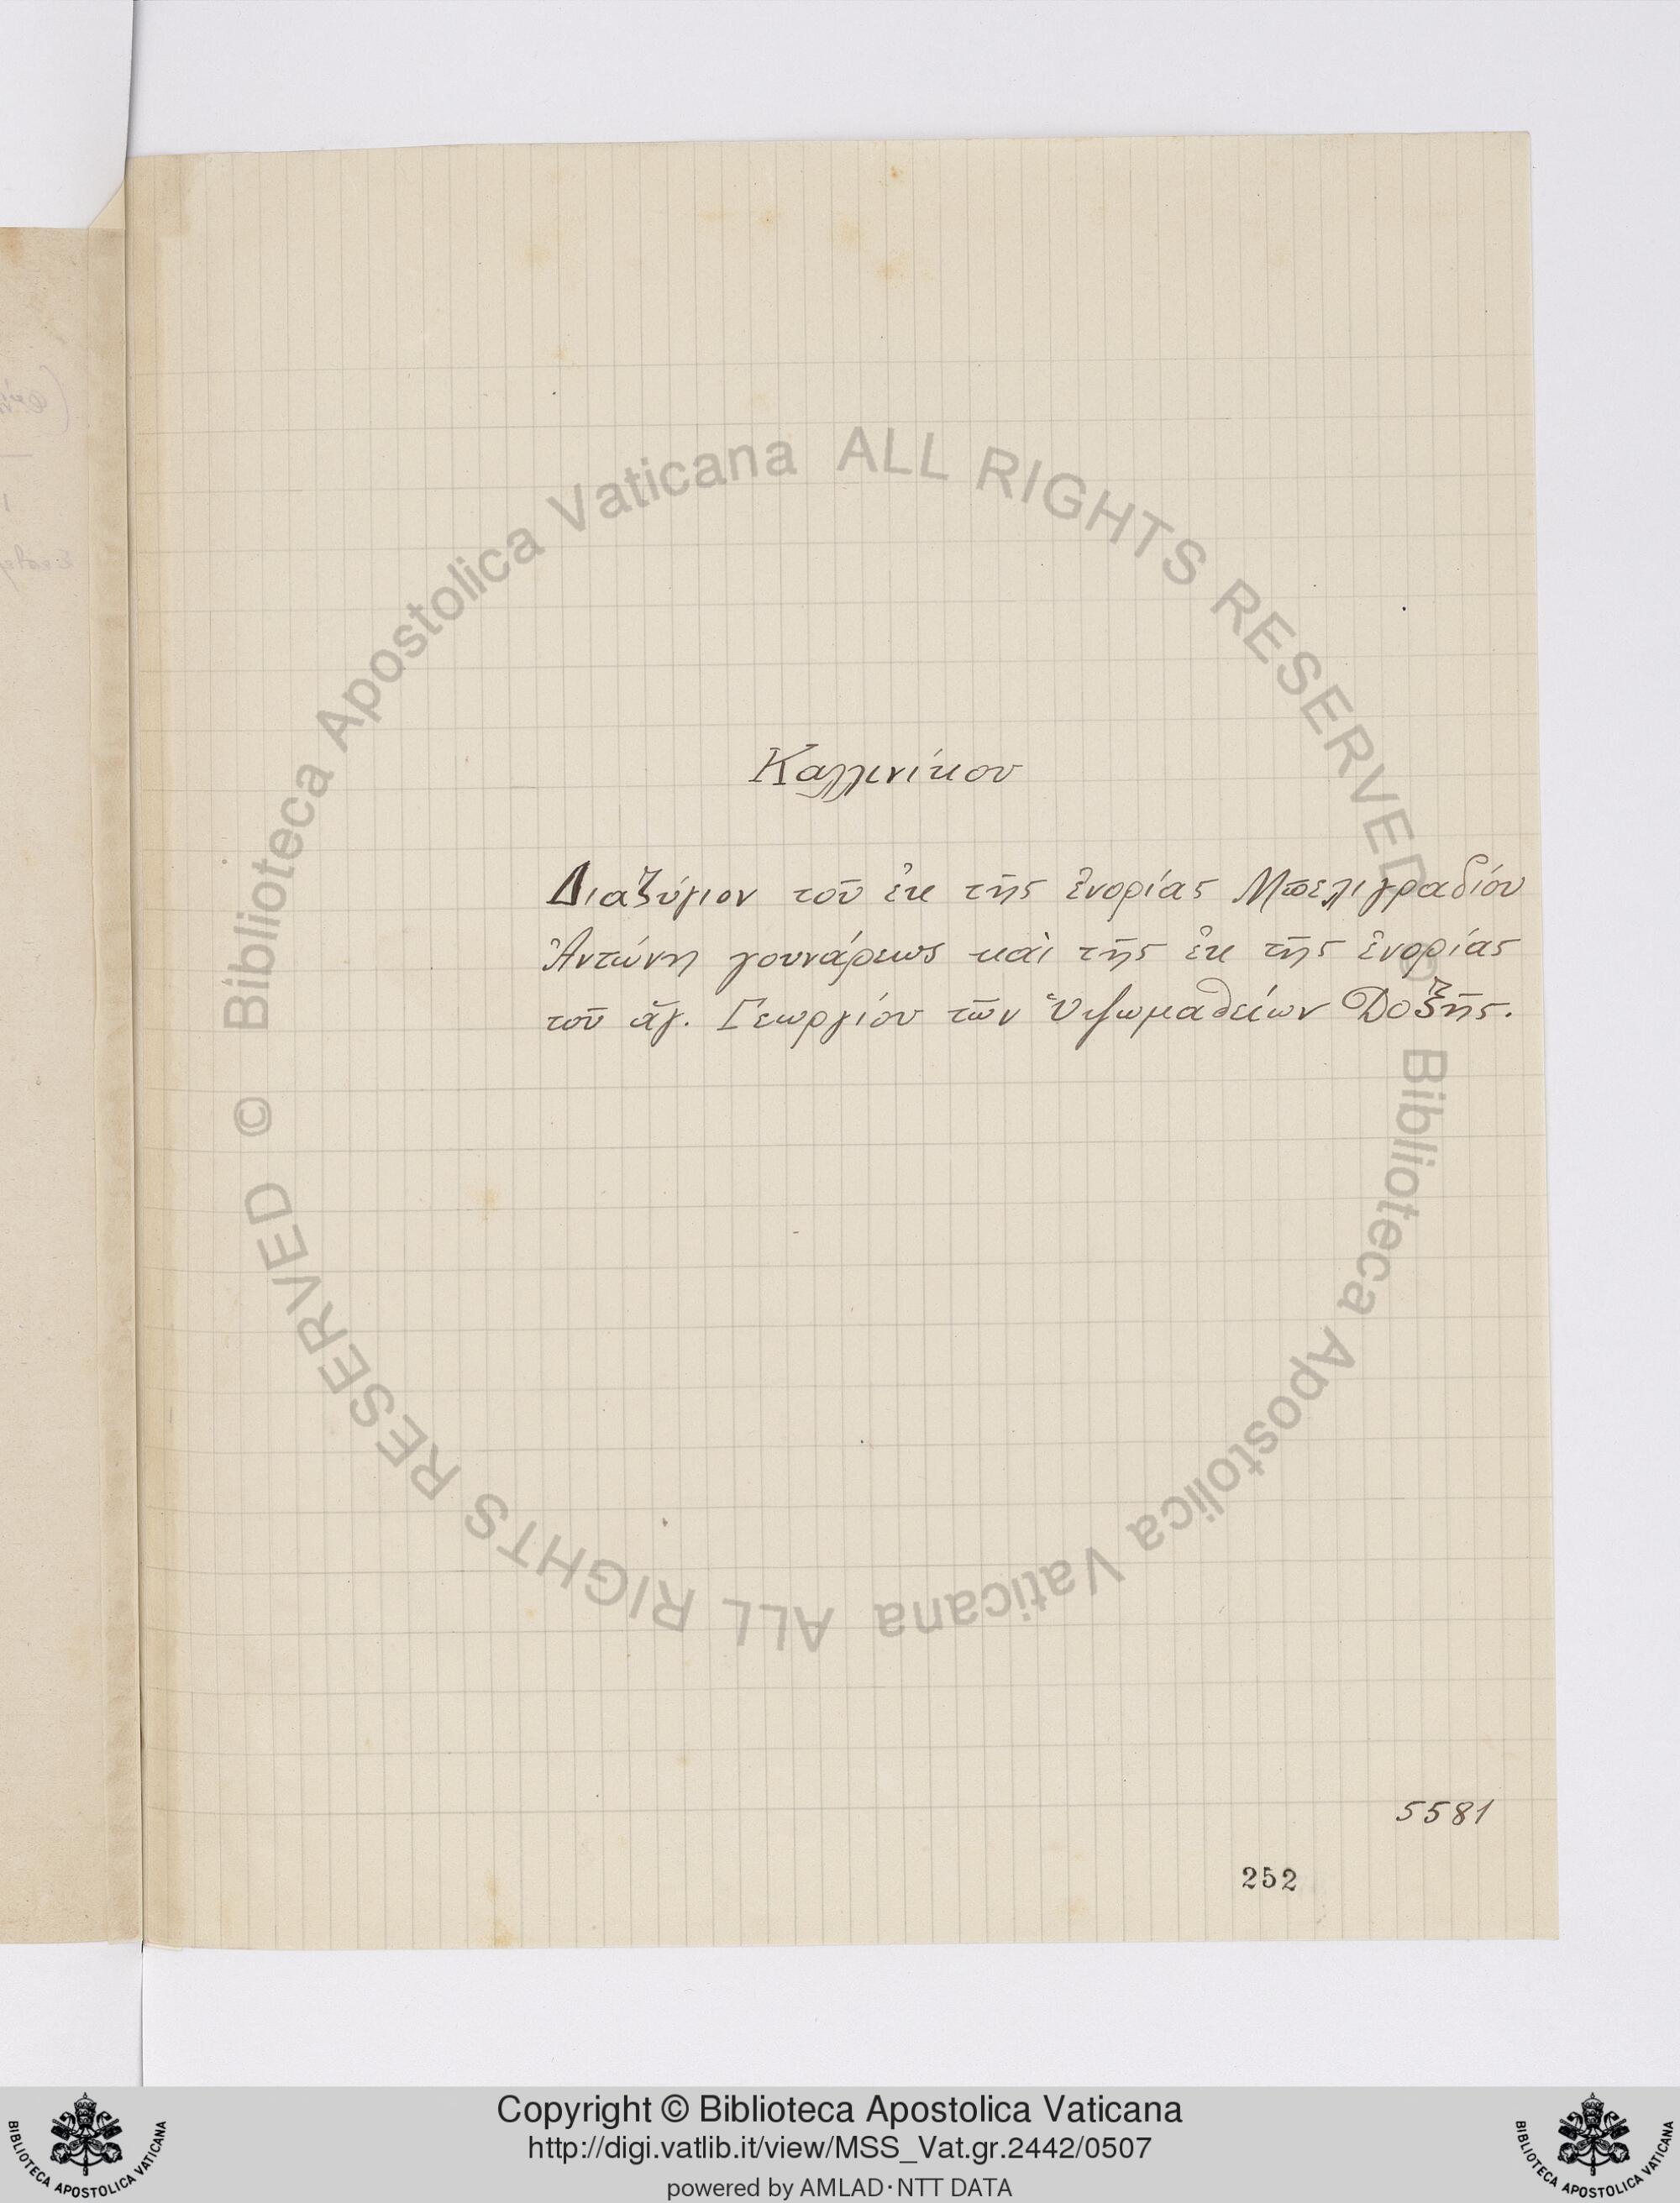 Καλλινίκου
Διαζύγιον τοῦ ἐκ τῆς ἐνορίας Μπελιγραδίου
Ἀντώνη γουνάρεως καὶ τῆς ἐκ τῆς ἐνορίας
τοῦ ἁγ. Γεωργίου τῶν Ὑψωμαθείων Δοξῆς.
5581
252
© Biblioteca Apostolica Vaticana ALL RIGHTS RESERVED
© Biblioteca Apostolica Vaticana ALL RIGHTS RESERVED
Copyright © Biblioteca Apostolica Vaticana
http://digi.vatlib.it/view/MSS_Vat.gr.2442/0507
powered by AMLAD·NTT DATA
BIBLIOTECA APOSTOLICA VATICANA
BIBLIOTECA APOSTOLICA VATICANA